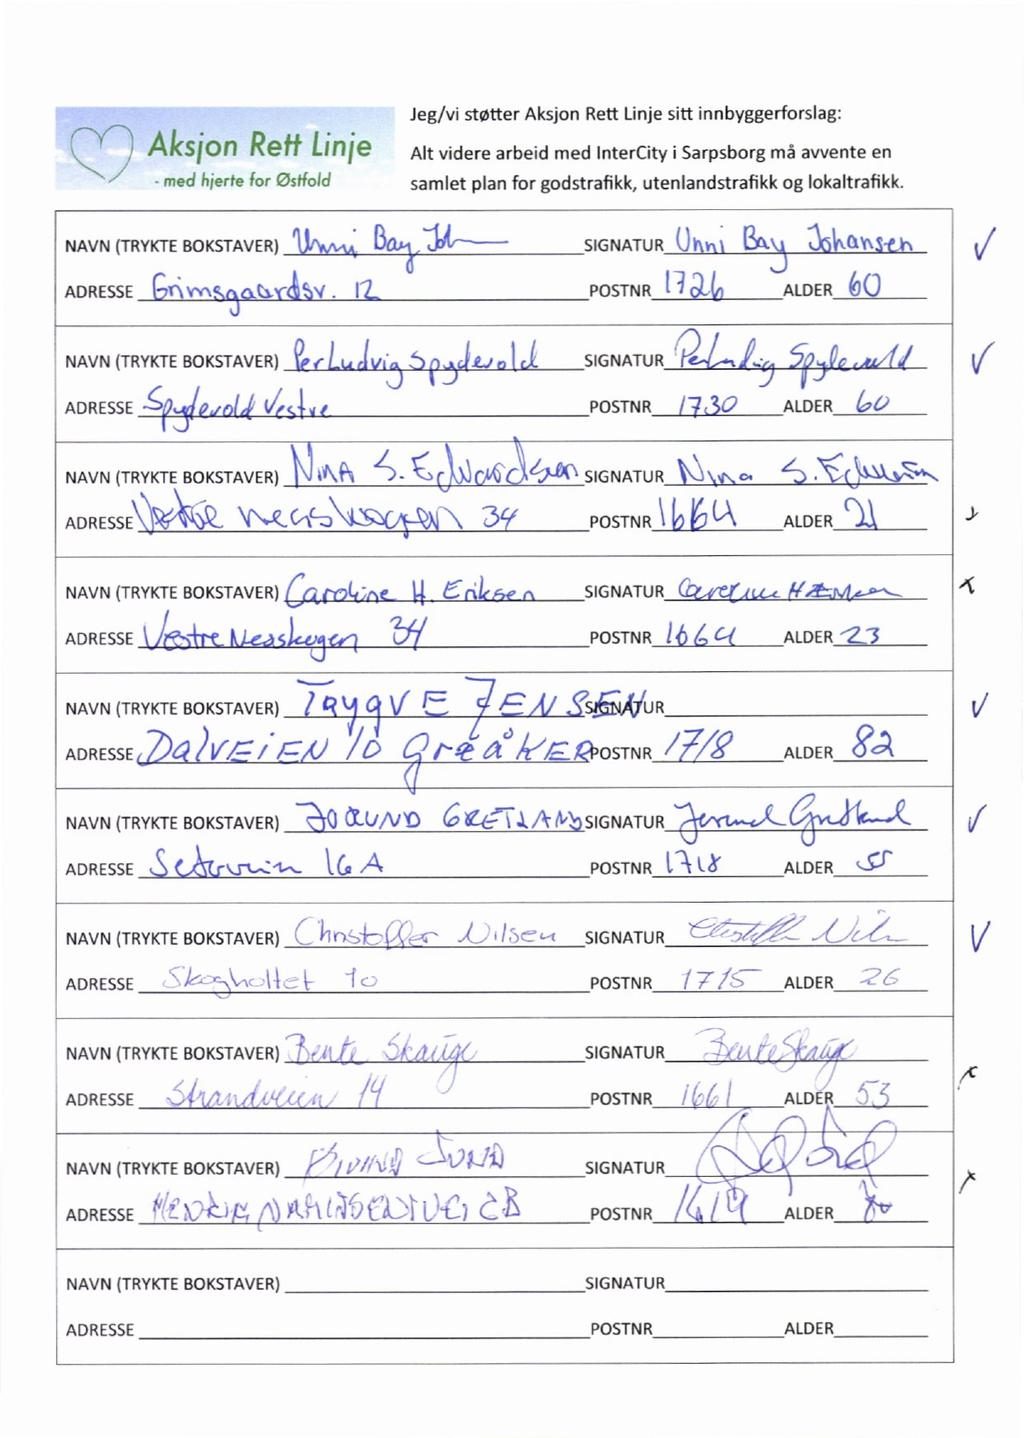 Aksjon Rett Linje
- med hjerte for Østfold
Jeg/vi støtter Aksjon Rett Linje sitt innbyggerforslag:
Alt videre arbeid med InterCity i Sarpsborg må avvente en
samlet plan for godstrafikk, utenlandstrafikk og lokaltrafikk.
NAVN (TRYKTE BOKSTAVER) Unni Bay SIGNATUR Unni Bay Johansen
ADRESSE Grimsgaardsv. 12 POSTNR 1726 ALDER 60
NAVN (TRYKTE BOKSTAVER) Per Ludvig Spydevold SIGNATUR
ADRESSE Spydevold Vestre POSTNR 1730 ALDER 60
NAVN (TRYKTE BOKSTAVER) Nina S. Edvardsen SIGNATUR Nina S.
ADRESSE 34 POSTNR 1664 ALDER 21
NAVN (TRYKTE BOKSTAVER) Caroline H. Eriksen SIGNATUR
ADRESSE Vestre Nesskogen 34 POSTNR 1664 ALDER 23
NAVN (TRYKTE BOKSTAVER) TRYGVE JENSEN SIGNATUR
ADRESSE DalVEiEN 10 GreåKER POSTNR 1718 ALDER 82
NAVN (TRYKTE BOKSTAVER) JORUND GRETLAND SIGNATUR
ADRESSE 16 A POSTNR 1718 ALDER 55
NAVN (TRYKTE BOKSTAVER) Christoffer Nilsen SIGNATUR
ADRESSE Skogholtet 10 POSTNR 1715 ALDER 26
NAVN (TRYKTE BOKSTAVER) Bente Skauge SIGNATUR Bente Skauge
ADRESSE Strandveien 14 POSTNR 1661 ALDER 53
NAVN (TRYKTE BOKSTAVER) SIGNATUR
ADRESSE POSTNR 1619 ALDER
NAVN (TRYKTE BOKSTAVER) SIGNATUR
ADRESSE POSTNR ALDER